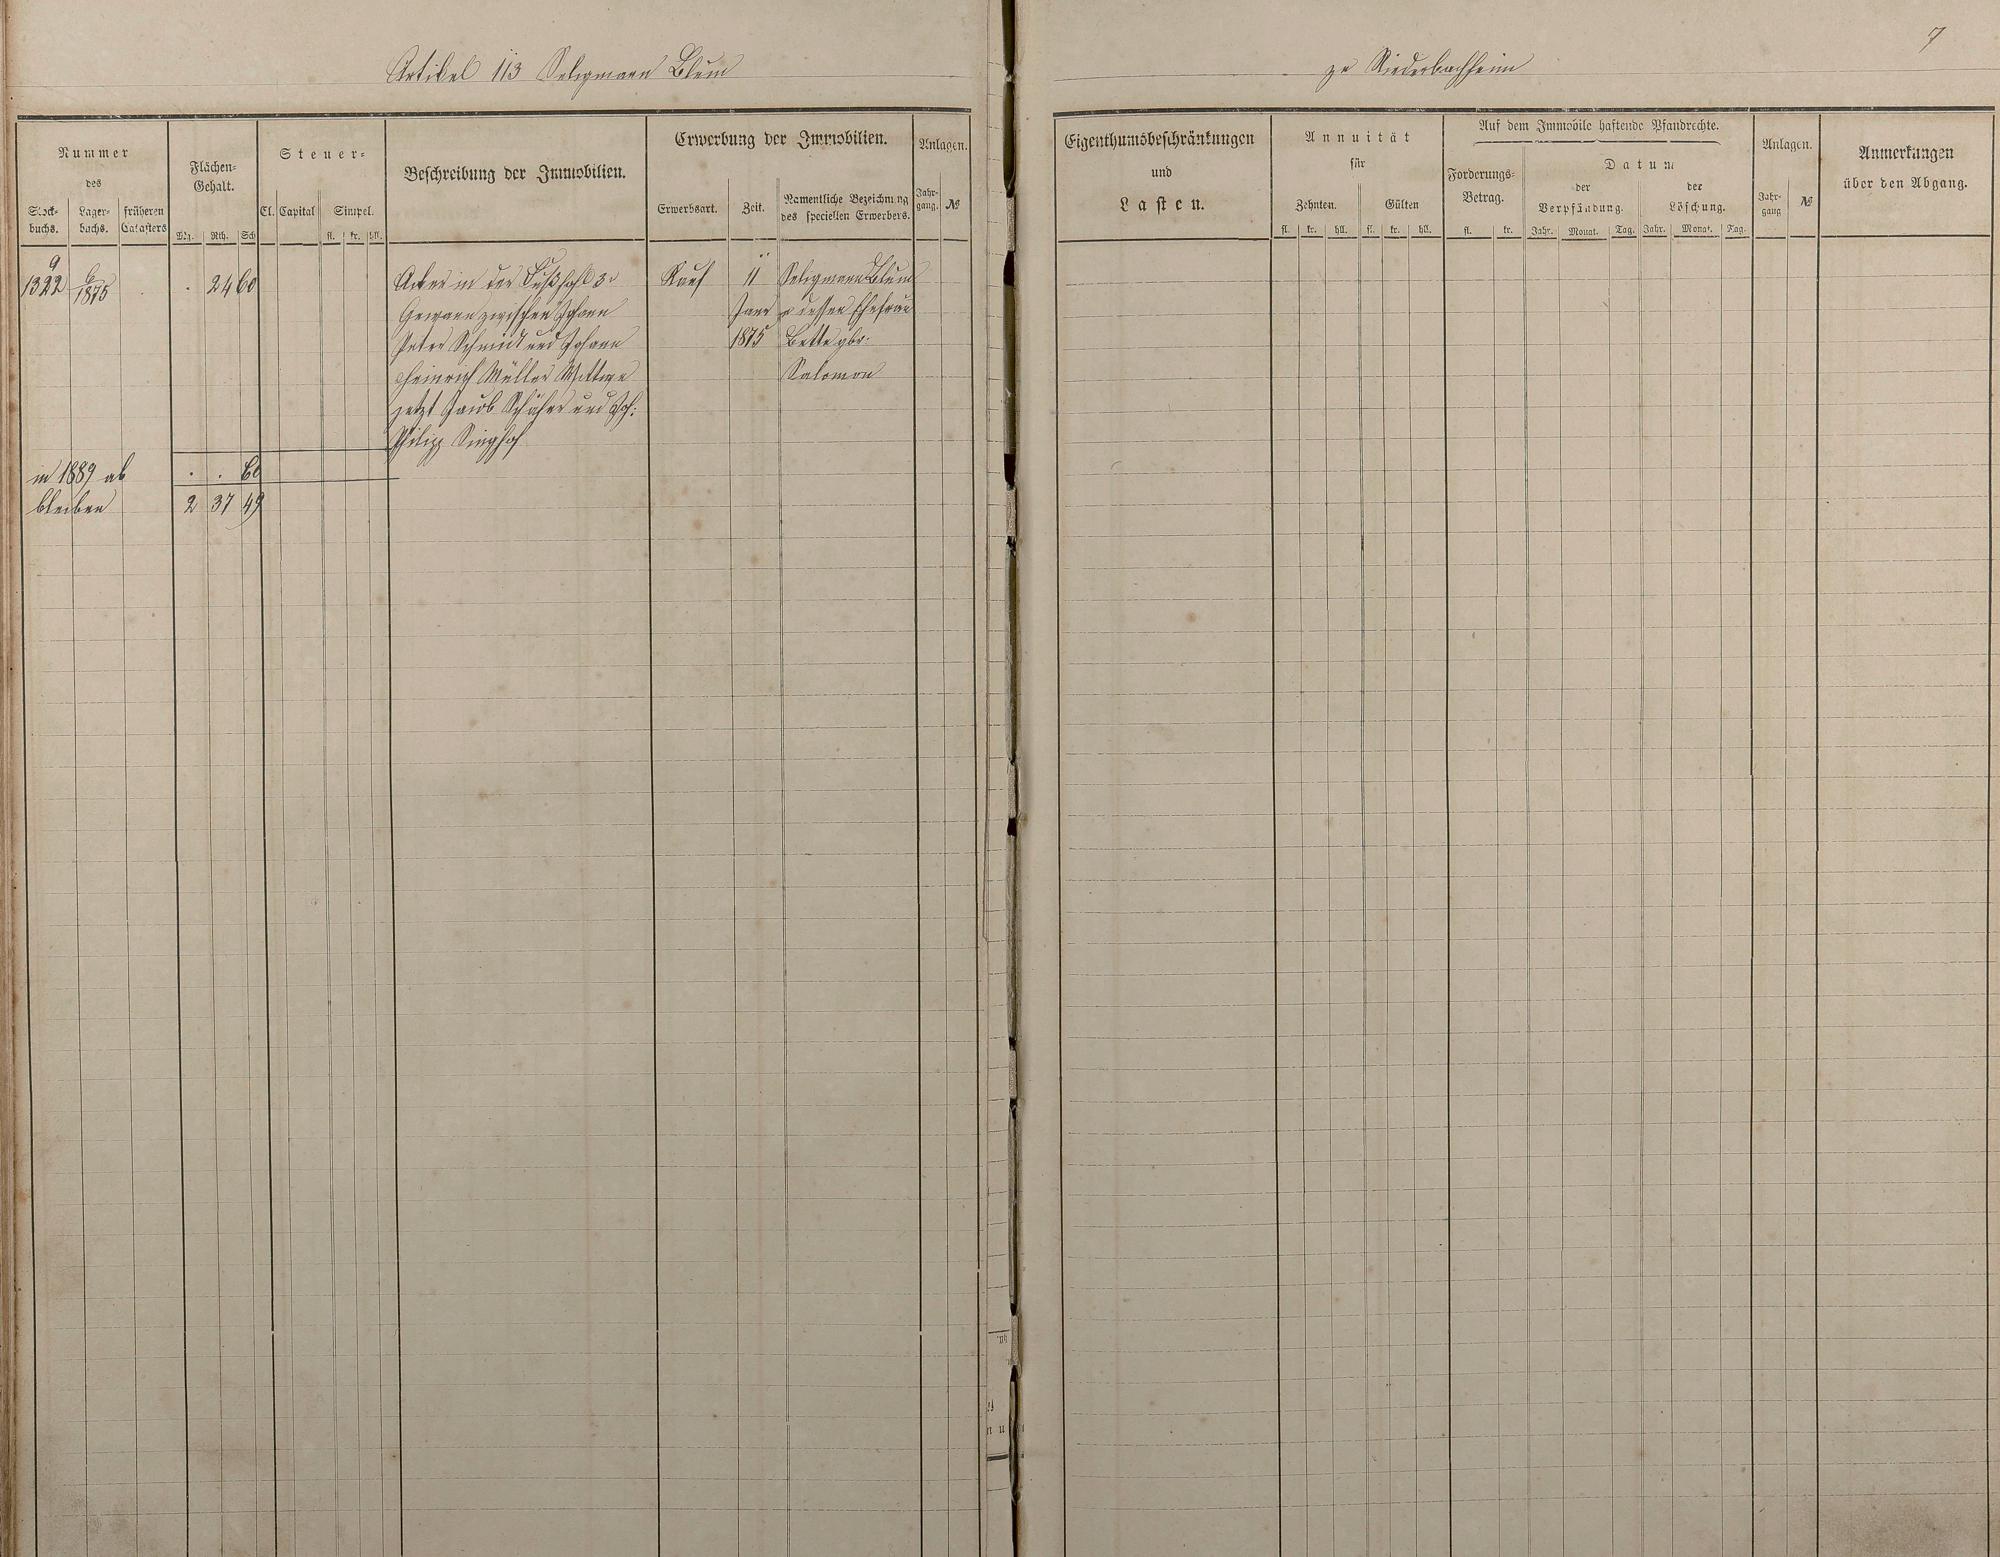 Artikel 113 Seligmann Blum
Nummer
des
Stock-
buchs.
Lager-
buchs.
früheren
Catasters
Flächen-
Gehalt.
Mg. Rth. Sch
Steuer-
Cl. Capital Simpel.
fl. kr. hll.
Beschreibung der Immobilien.
Erwerbung der Immobilien.
Erwerbsart. Zeit.
Namentliche Bezeichnung
des speciellen Erwerbers.
Anlagen.
Jahr-
gang. №
9
1322
6
1875
. 24 60
Acker in der 3r
Gewann zwischen Johann
Peter Schmidt und Johann
Heinrich Müller Wittwe
jetzt Jacob Schäfer und Joh:
Philipp Singhof
Kauf
11
Janr
1875
Seligmann Blum
u dessen Ehefrau
Bette gbr:
Salomon
in 1889 ab . . 60
bleiben 2 37 49
7
zu Niederbachheim
Eigenthumsbeschränkungen
und
Lasten.
Annuität
für
Zehnten. Gülten
fl. kr. hll. fl. kr. hll.
Auf dem Immobile haftende Pfandrechte.
Forderungs-
Betrag.
fl. kr.
Datum
der
Verpfändung.
Jahr. Monat. Tag.
der
Löschung.
Jahr. Monat. Tag.
Anlagen.
Jahr-
gang №
Anmerkungen
über den Abgang.